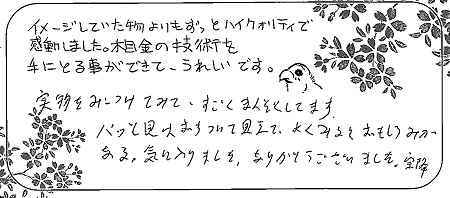 イメージしていた物よりもずっとハイクオリティで
感動しました。木目金の技術を
手にとる事ができて、うれしいです。
実物をみにつけてみて、すごくまんぞくしてます
パッと見はおちついて見えて、よくみるとおもしろみが
ある。気に入りました。ありがとうございました。